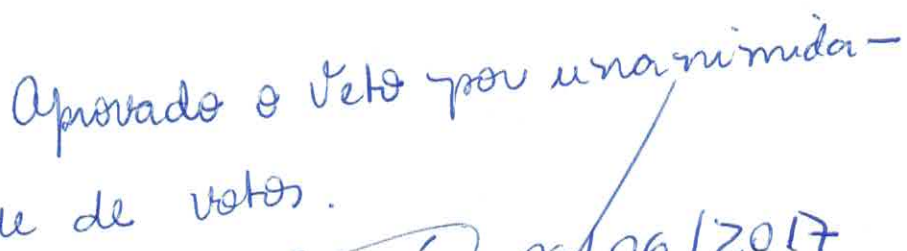 Aprovado o Veto por unanimida-
de de votos.
/2017